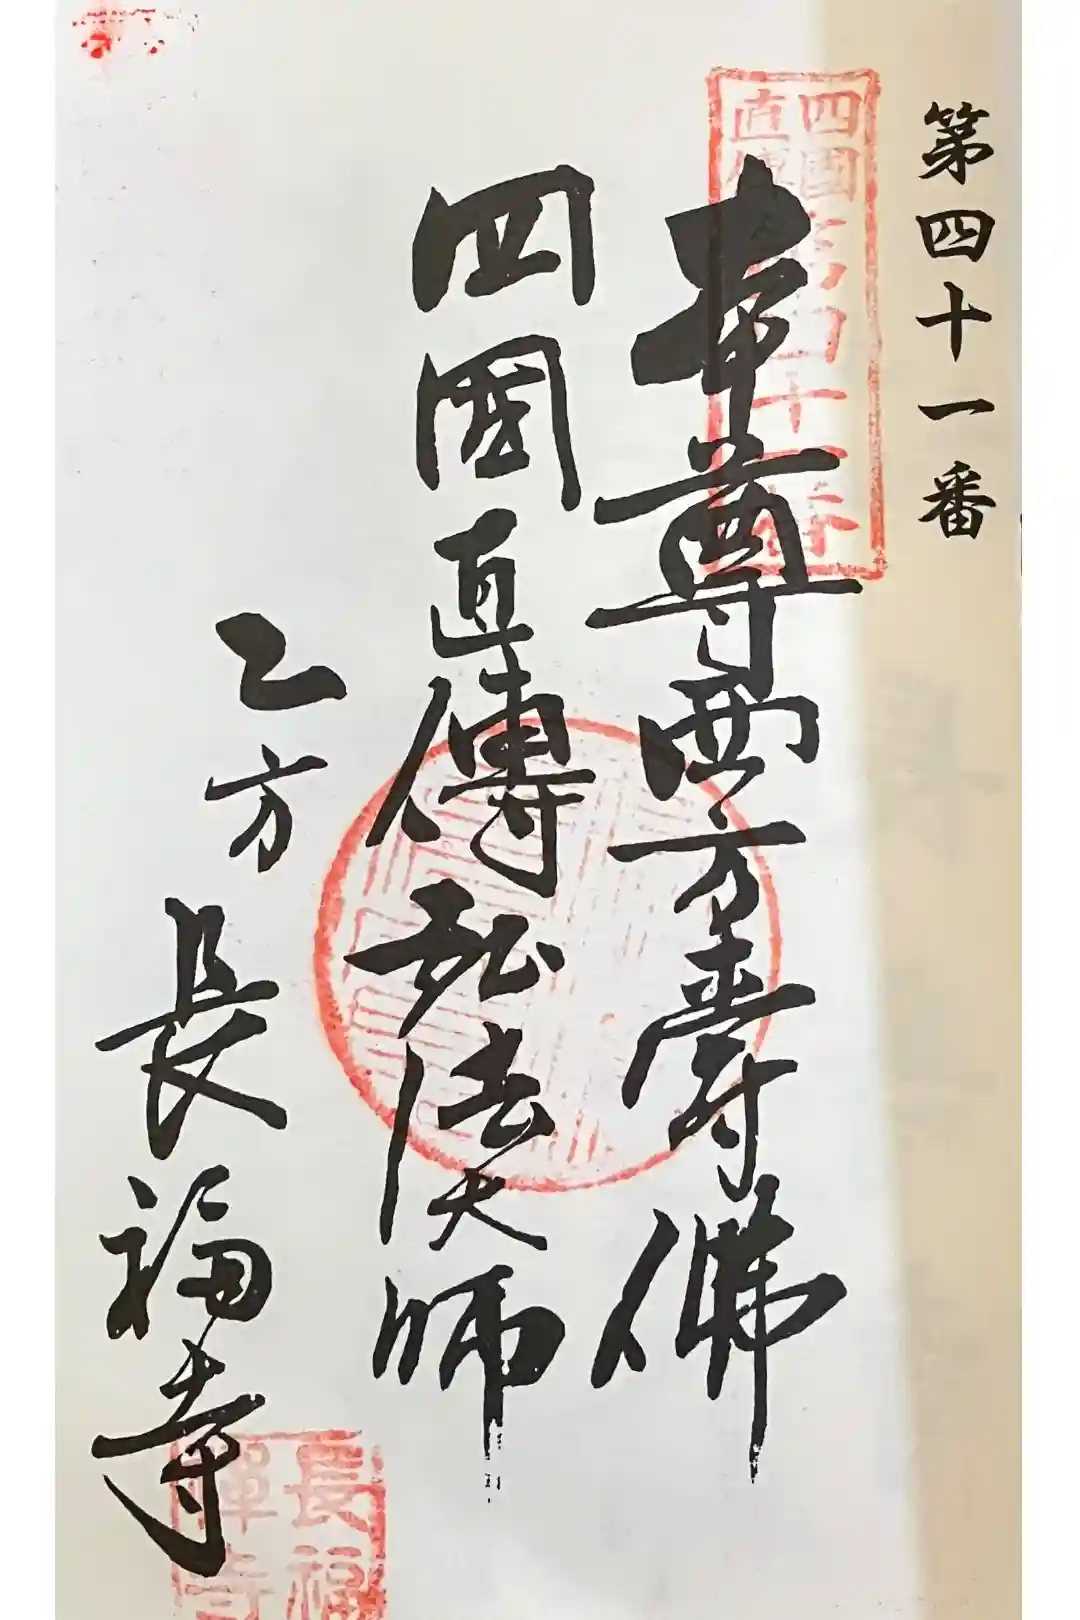 第四十一番
四國
直傳
第四十一番
本尊西方壽佛
四國直傳弘法大師
乙方 長福寺
長福
禪寺